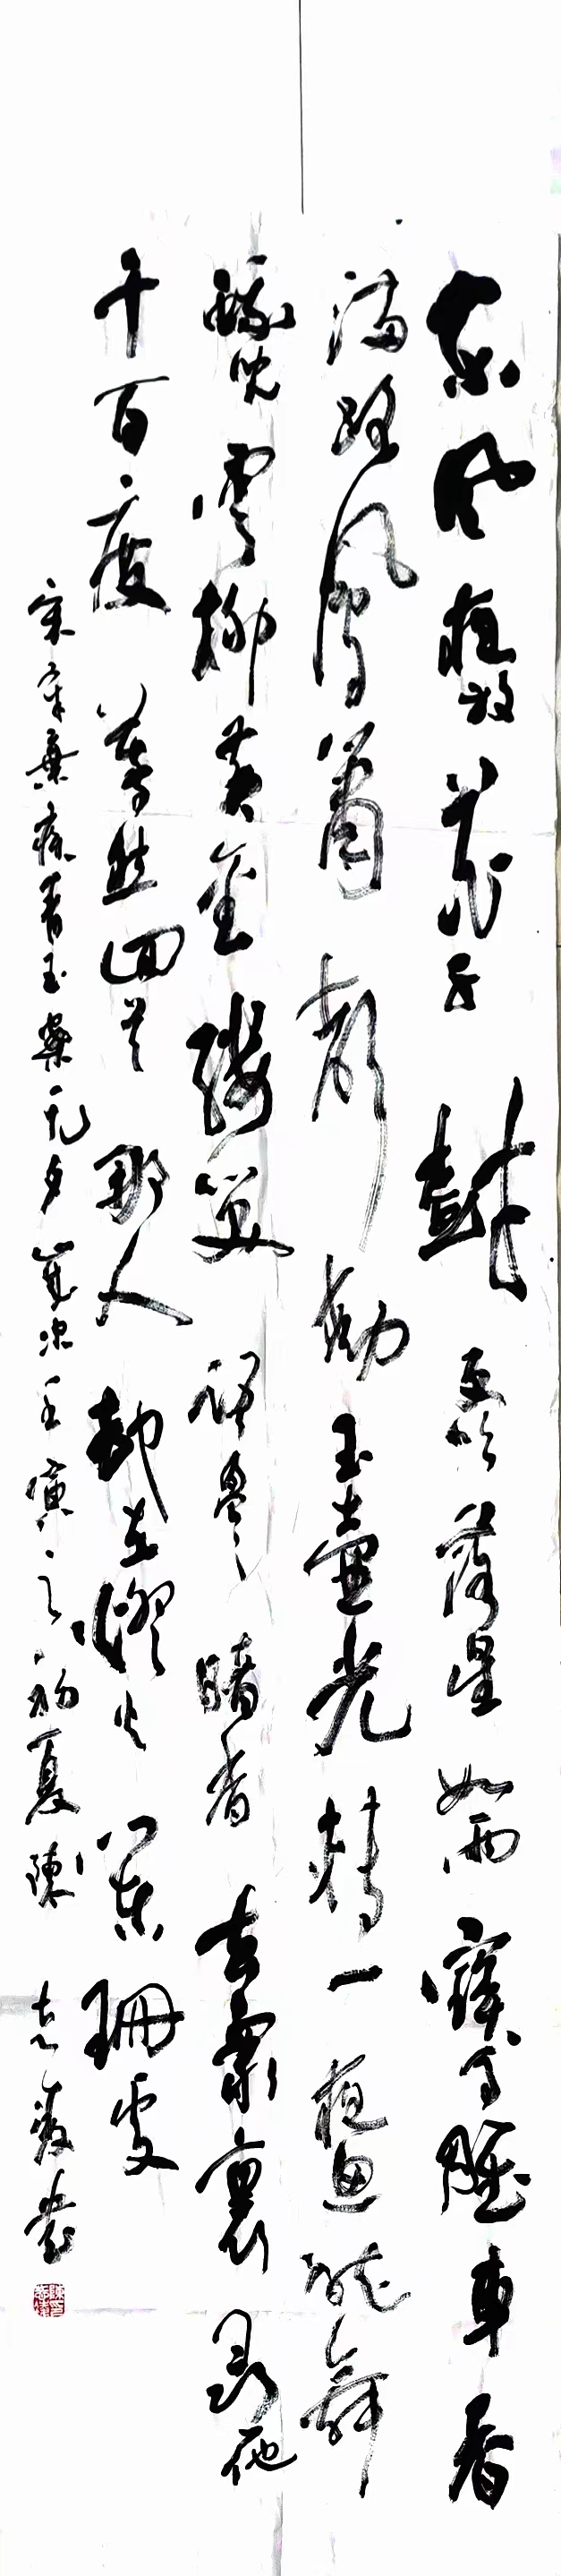 東風夜放花千樹更吹落星如雨寶馬雕車香
滿路鳳簫聲動玉壺光轉一夜魚龍舞
蛾兒雪柳黃金縷笑語盈盈暗香去眾裏尋他
千百度驀然回首那人卻在燈火闌珊處
宋辛棄疾青玉案元夕歲次壬寅之初夏陳志